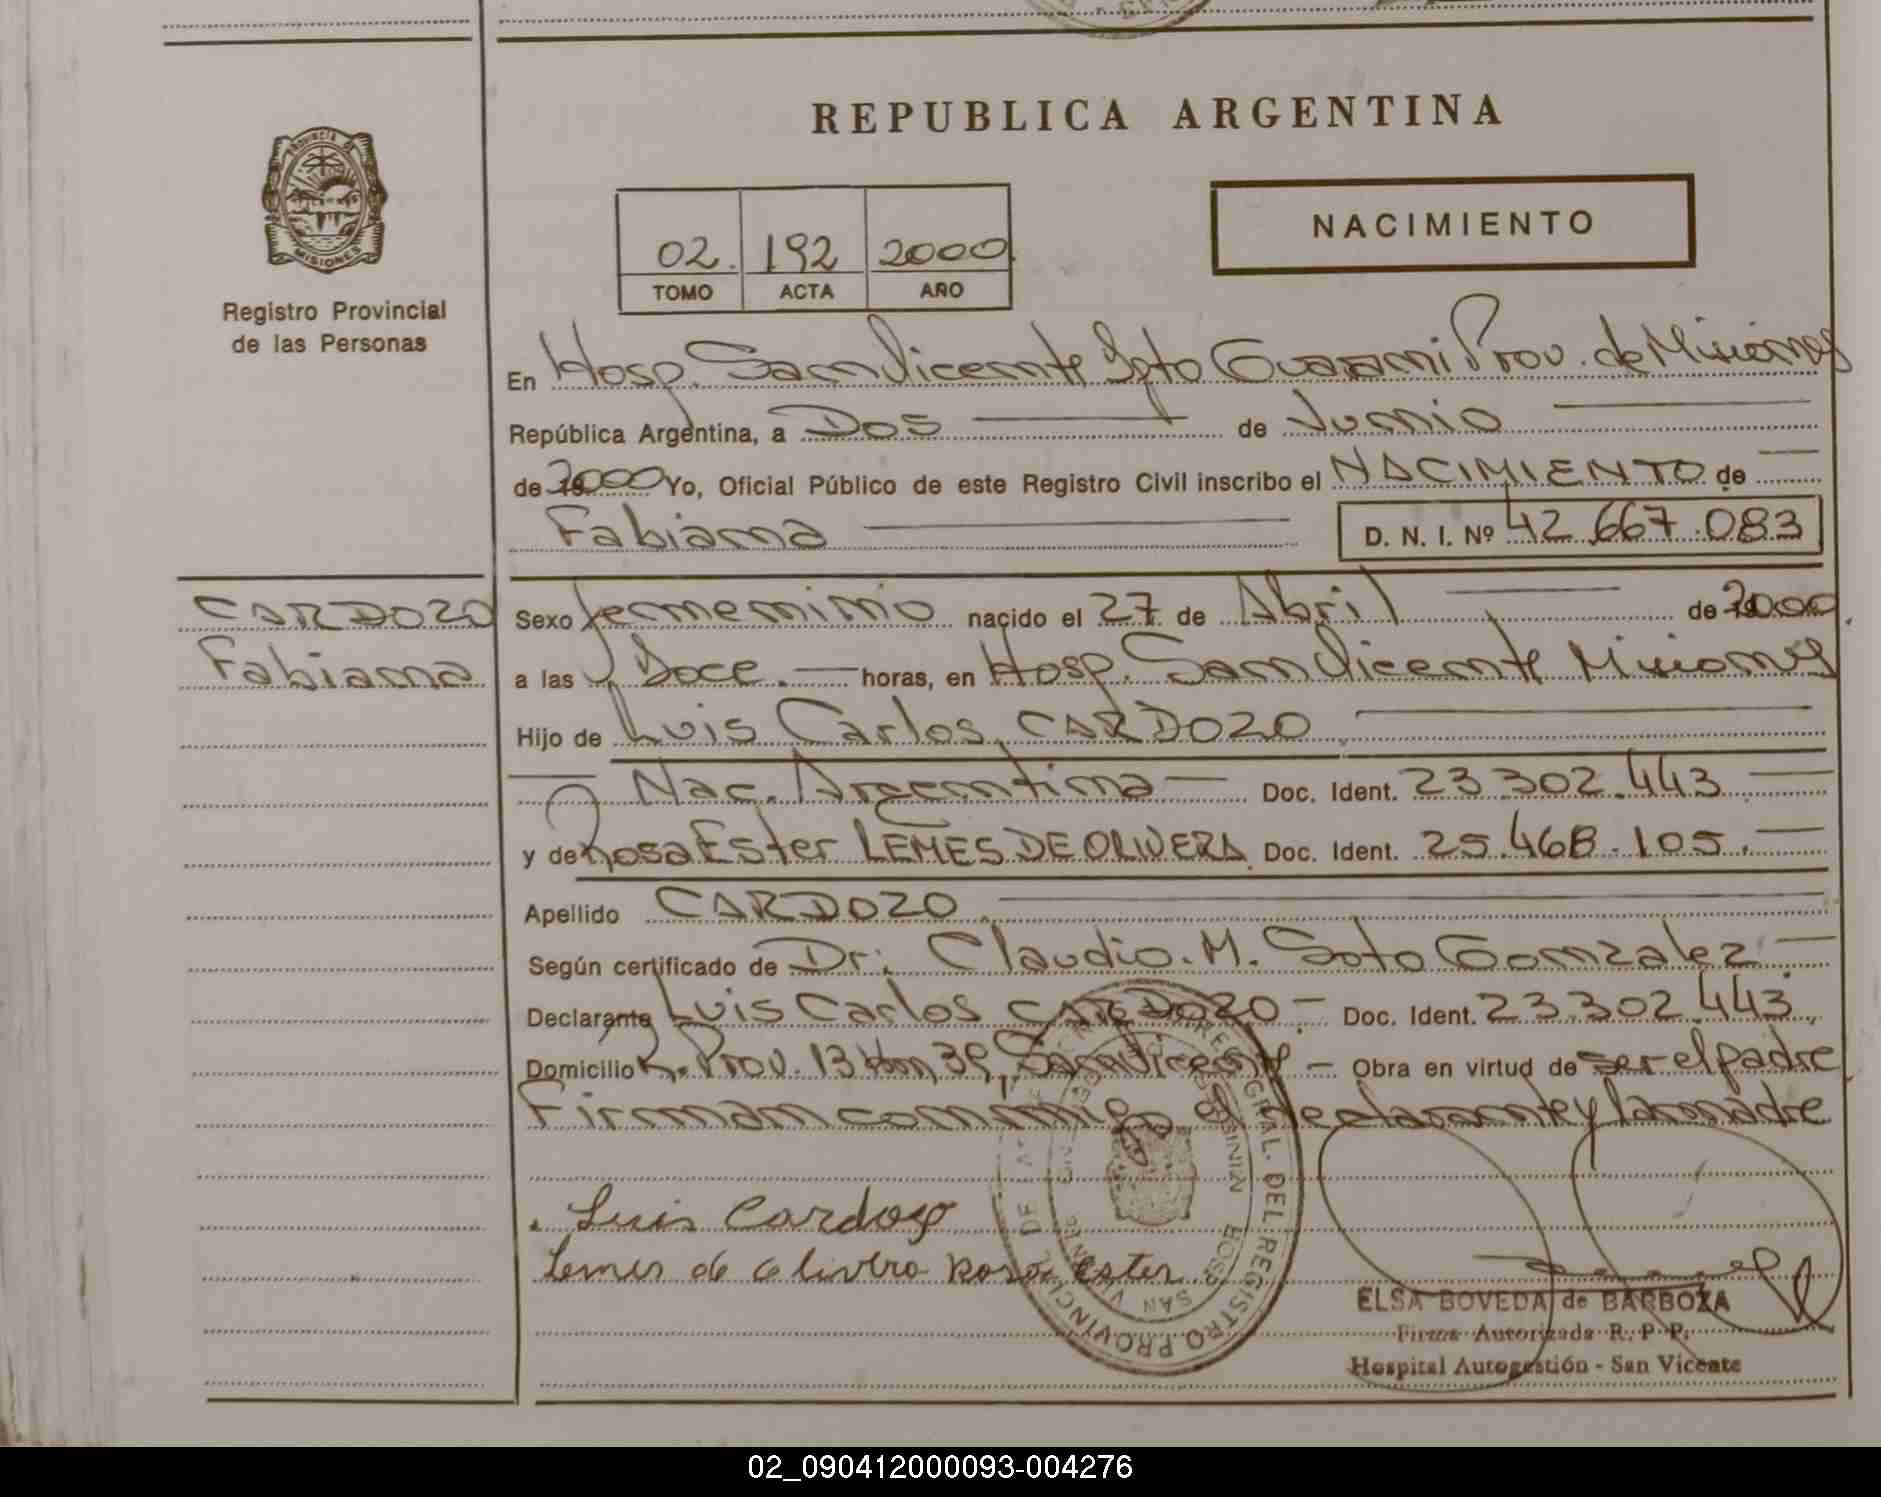 REPUBLICA ARGENTINA
PROVINCIA DE
MISIONES
Registro Provincial
de las Personas
02. 192 2000
TOMO ACTA AÑO
NACIMIENTO
En Hosp. San Vicente Dpto Guarani Prov. de Misiones
República Argentina, a Dos de Junio
de 2000 Yo, Oficial Público de este Registro Civil inscribo el NACIMIENTO de
Fabiana D. N. I. Nº 42.667.083
CARDOZO
Fabiana
Sexo femenino nacido el 27 de Abril de 2000.
a las Doce. horas, en Hosp. San Vicente Misiones
Hijo de Luis Carlos CARDOZO.
Nac. Argentina Doc. Ident. 23.302.443
y de Rosa Ester LEMES DE OLIVERA. Doc. Ident. 25.468.105.
Apellido CARDOZO.
Según certificado de Dr. Claudio. M. Soto Gonzalez.
Declarante Luis Carlos CARDOZO. Doc. Ident. 23.302.443.
Domicilio R. Prov. 13 Km 39, San Vicente Obra en virtud de ser el padre.
Firman conmigo el declarante y la madre
Luis Cardozo
Lemes de Olivera Rosa Ester
GRAL. DEL REGISTRO PROVINCIAL DE LAS
HOSP SAN VICENTE
ELSA BOVEDA de BARBOZA
Firma Autorizada R. P. P.
Hospital Autogestión - San Vicente
02_090412000093-004276